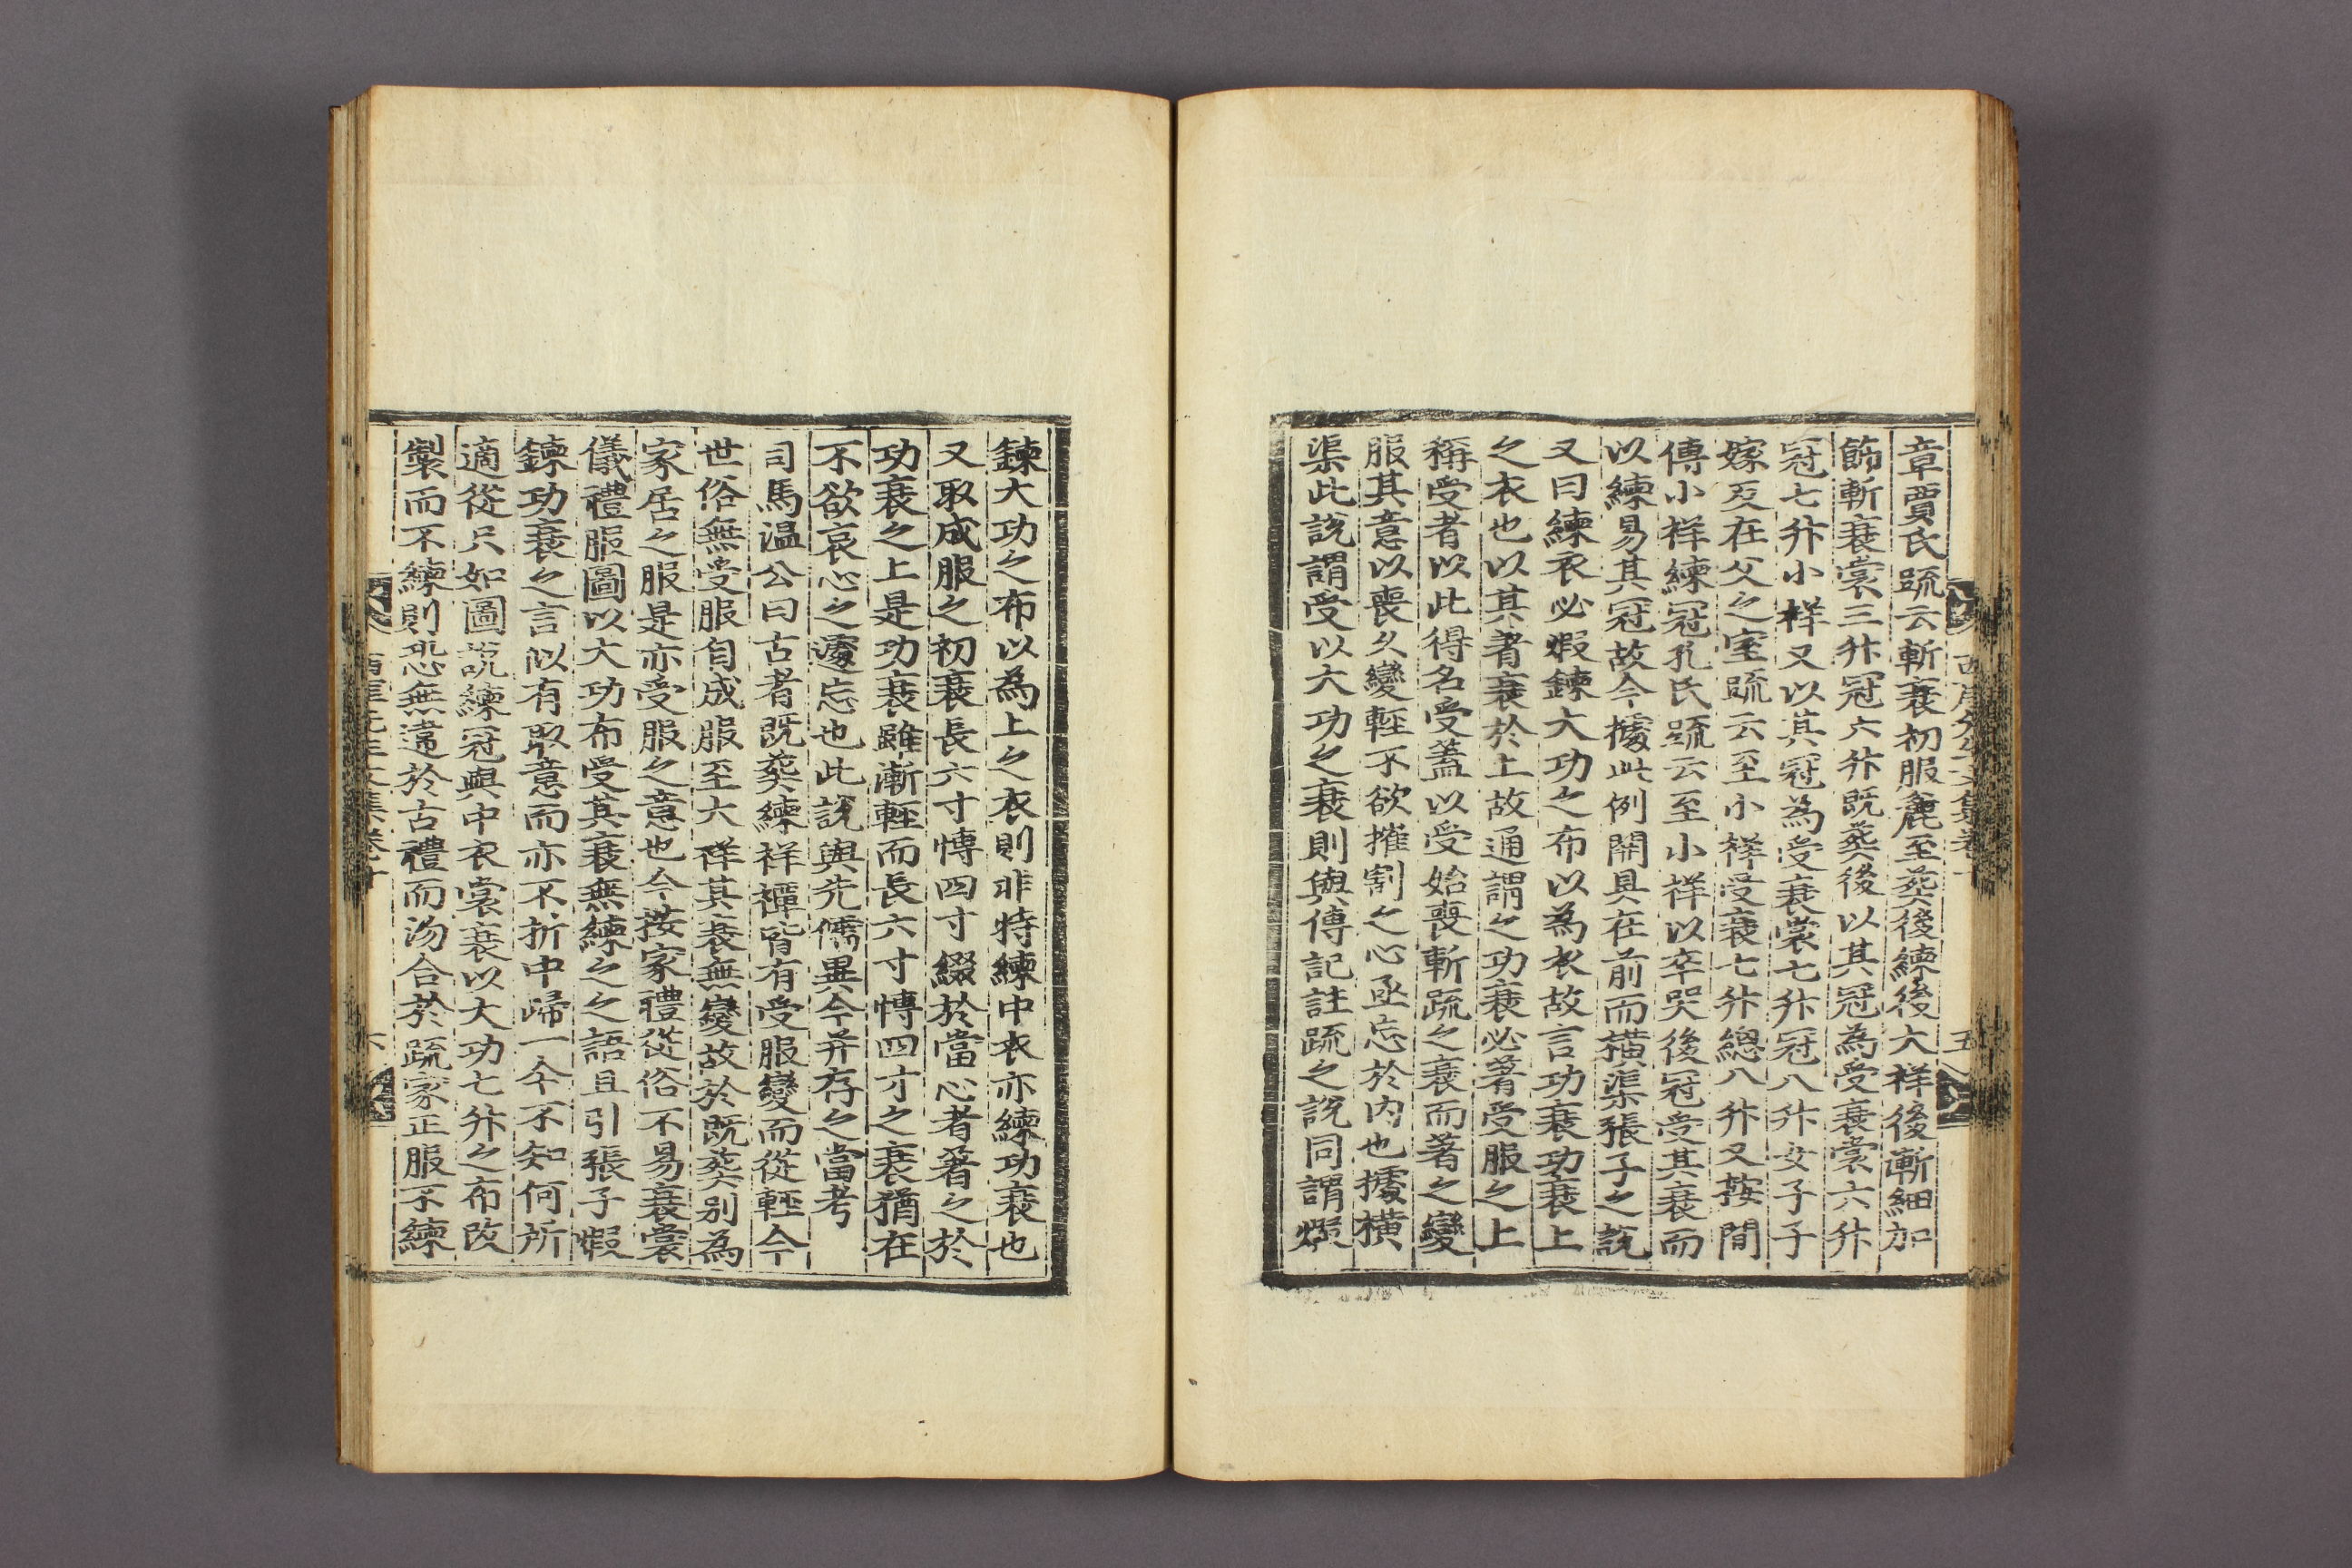 章賈氏疏云斬衰初服麄至葬後練後大祥後漸細加
飾斬衰裳三升冠六升既葬後以其冠為受衰裳六升
冠七升小祥又以其冠為受衰裳七升冠八升女子子
嫁反在父之室疏云至小祥受衰七升總八升又按間
傳小祥練冠孔氏疏云至小祥以卒哭後冠受其衰而
以練易其冠故今據此例開具在前而橫渠張子之說
又曰練衣必煆鍊大功之布以為衣故言功衰功衰上
之衣也以其著衰於上故通謂之功衰必著受服之上
稱受者以此得名受蓋以受始喪斬疏之衰而著之變
服其意以喪久變輕不欲摧割之心亟忘於內也據橫
渠此說謂受以大功之衰則與傳記註疏之說同謂煆
鍊大功之布以為上之衣則非特練中衣亦練功衰也
又取成服之初衰長六寸慱四寸綴於當心者著之於
功衰之上是功衰雖漸輕而長六寸慱四寸之衰猶在
不欲哀心之遽忘也此說與先儒異今并存之當考
司馬溫公曰古者既葬練祥禫皆有受服變而從輕今
世俗無受服自成服至大祥其衰無變故於既葬別為
家居之服是亦受服之意也今按家禮從俗不易衰裳
儀禮服圖以大功布受其衰無練之之語且引張子煆
鍊功衰之言似有取意而亦不折中歸一今不知何所
適從只如圖說練冠與中衣裳衰以大功七升之布改
製而不練則恐無違於古禮而沕合於疏家正服不練